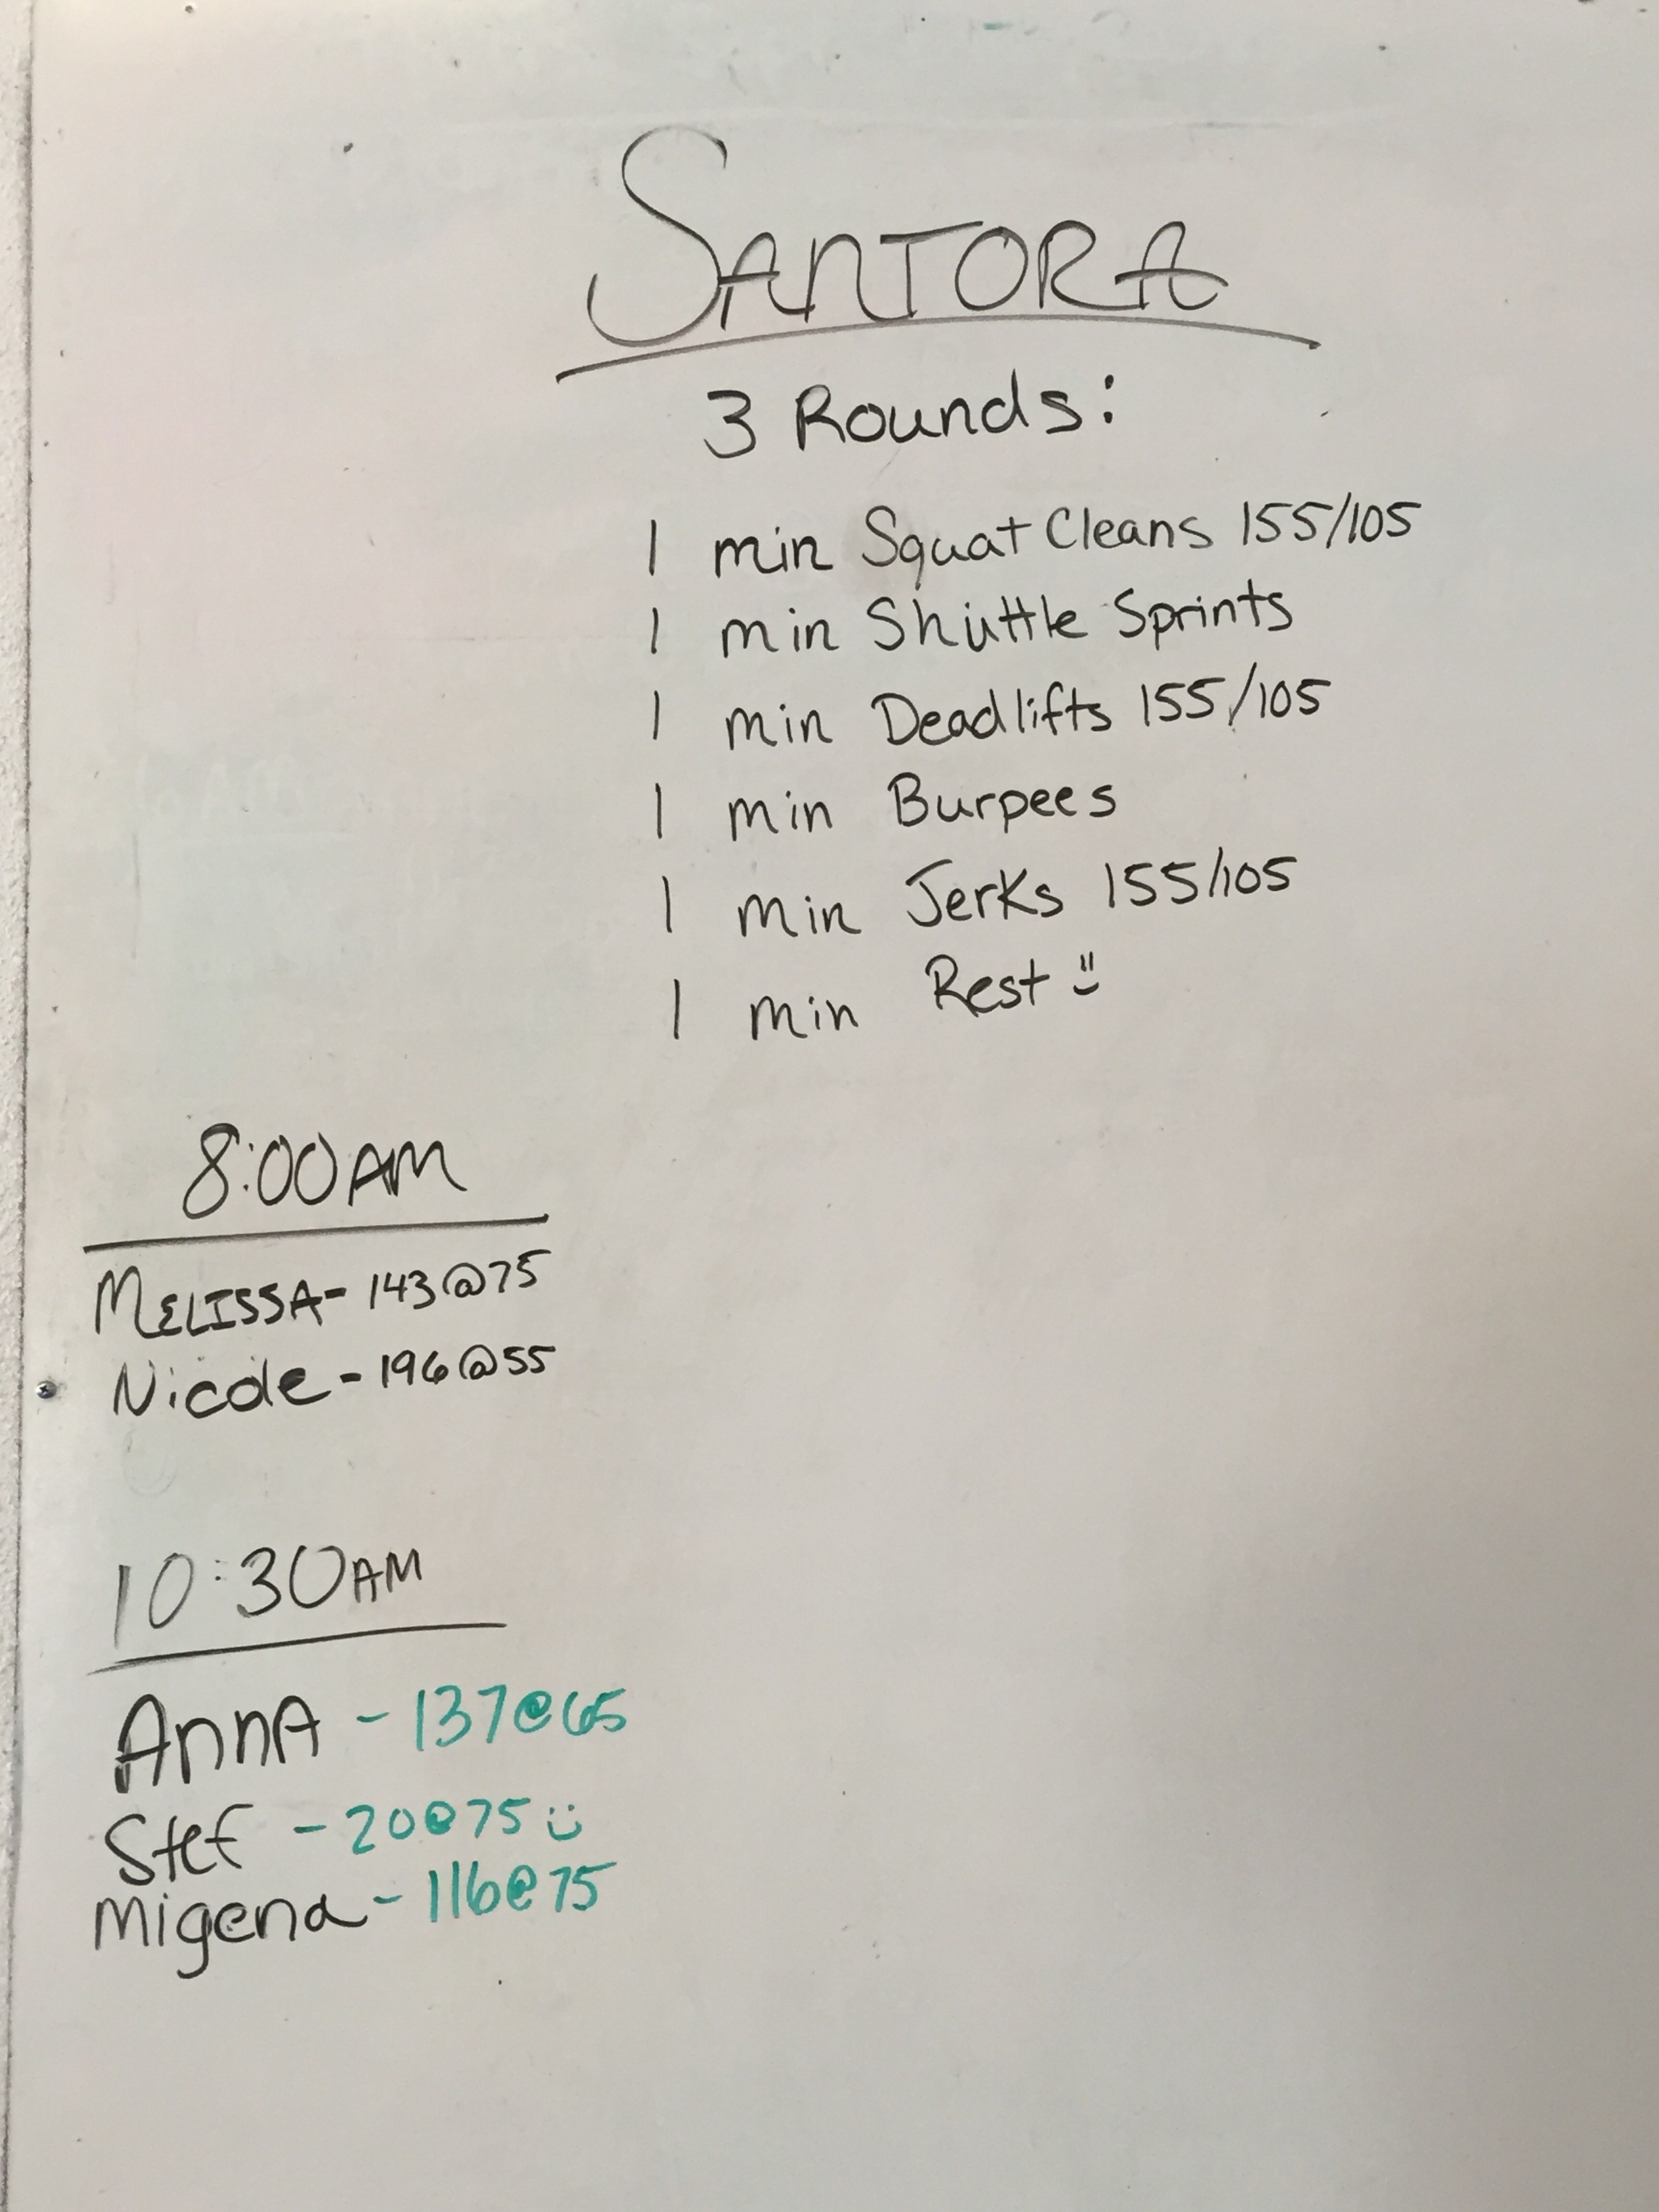 SANTORA
3 Rounds:
1 min Squat Cleans 155/105
1 min Shuttle Sprints
1 min Deadlifts 155/105
1 min Burpees
1 min Jerks 155/105
1 min Rest
8:00AM
MELISSA- 143@75
Nicole - 196@55
10:30AM
AnnA - 137@65
Stef - 20@75 :)
Migena - 116@75